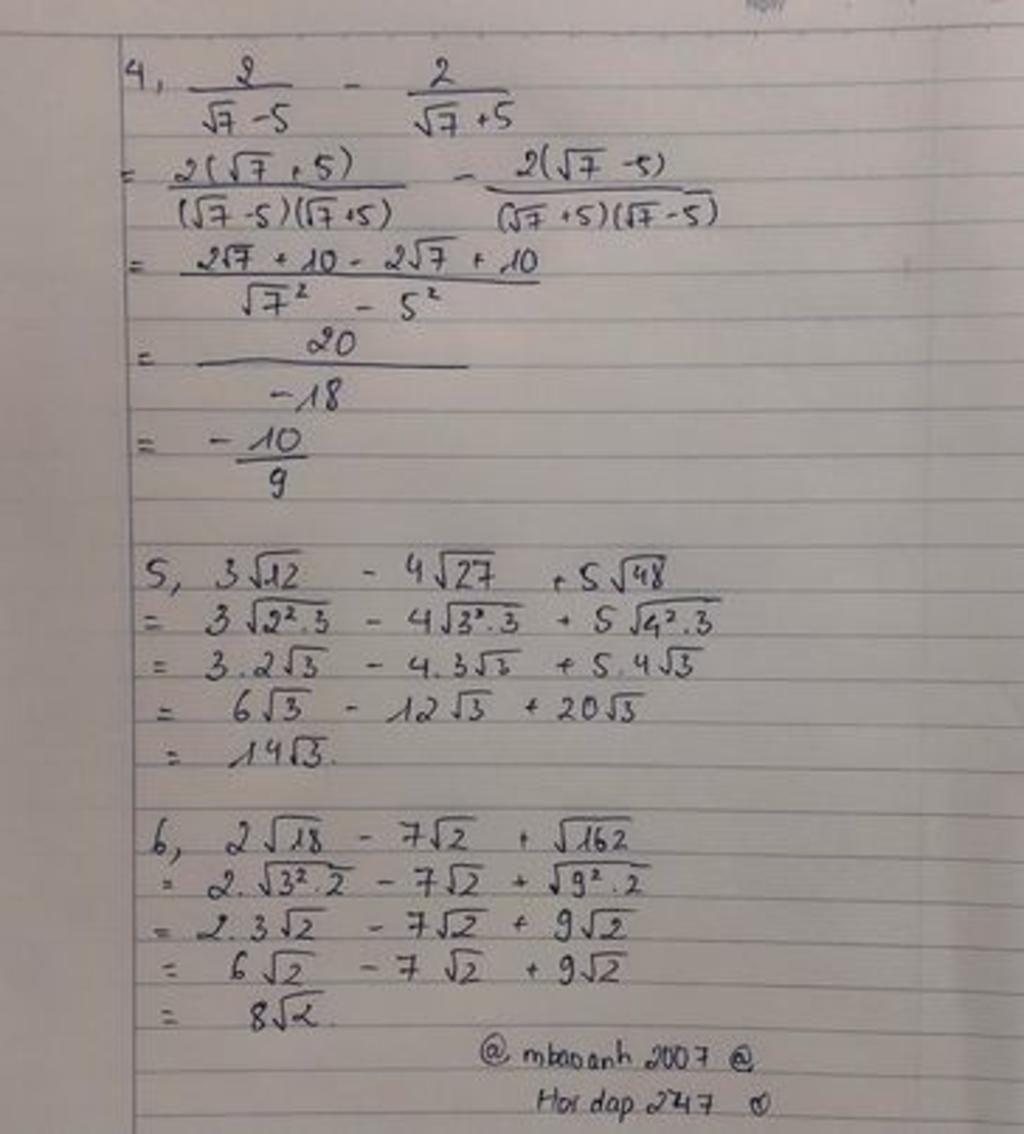 4, 2/(√7 - 5) - 2/(√7 + 5)
= 2(√7 + 5)/((√7 - 5)(√7 + 5)) - 2(√7 - 5)/((√7 + 5)(√7 - 5))
= (2√7 + 10 - 2√7 + 10)/(√7² - 5²)
= 20/(-18)
= - 10/9
5, 3√12 - 4√27 + 5√48
= 3√(2².3) - 4√(3².3) + 5√(4².3)
= 3.2√3 - 4.3√3 + 5.4√3
= 6√3 - 12√3 + 20√3
= 14√3.
6, 2√18 - 7√2 + √162
= 2.√(3².2) - 7√2 + √(9².2)
= 2.3√2 - 7√2 + 9√2
= 6√2 - 7√2 + 9√2
= 8√2.
@ mbaoanh 2007 @
Hoi dap 247